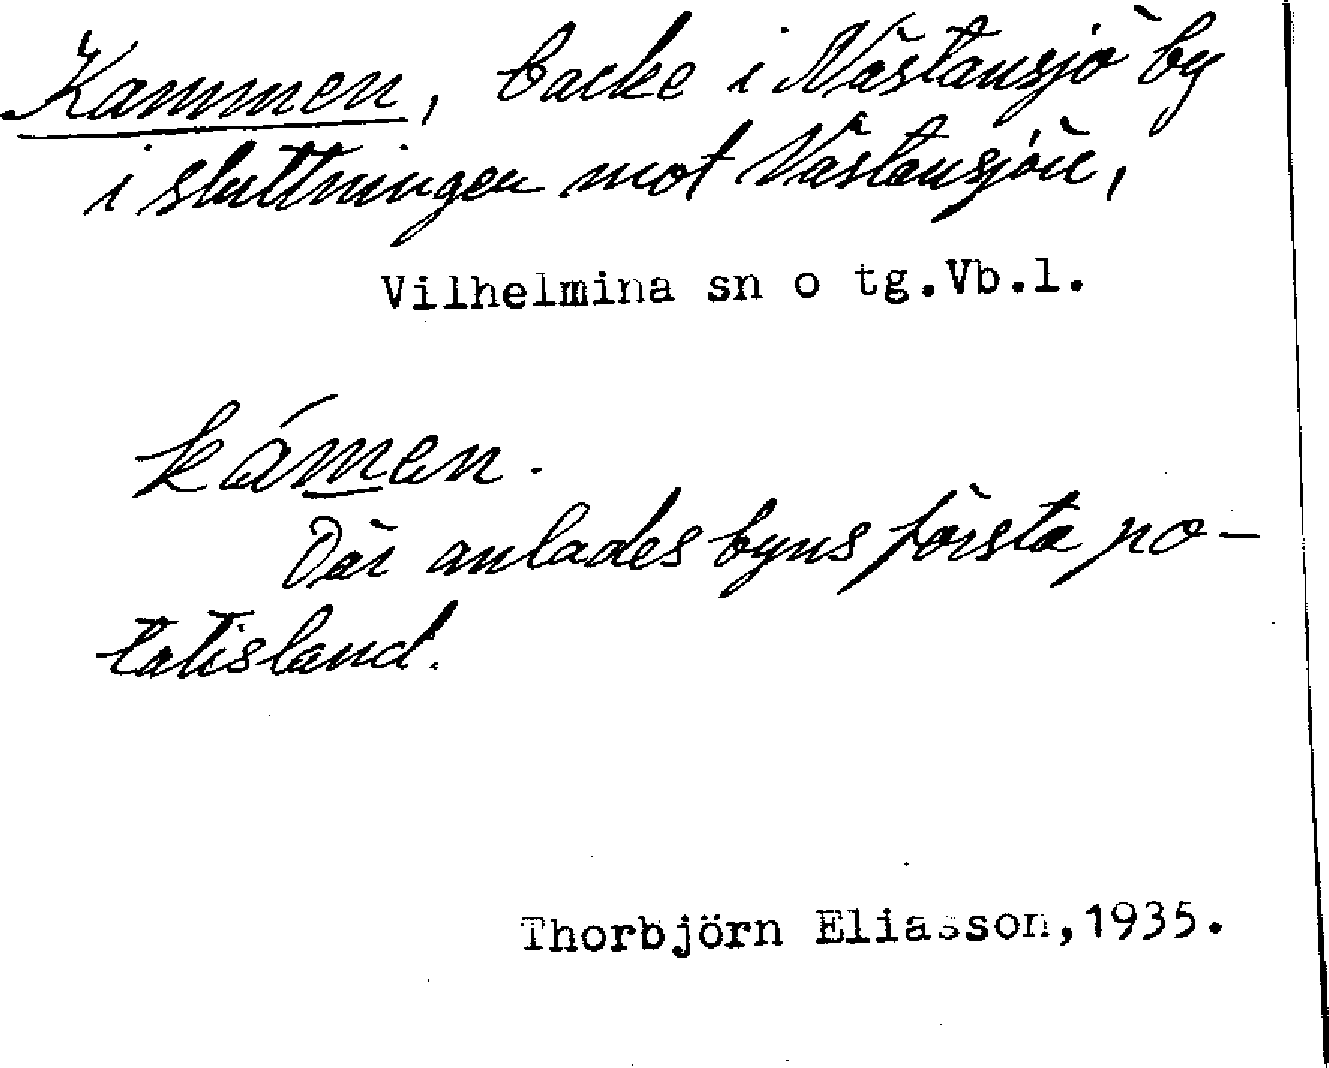 Kammen, backe i Nästansjö by
i sluttningen mot Västansjön,
Vilhelmina sn o tg.Vb.l.
kámen.
Där anlades byns första po-
tatisland.
Thorbjörn Eliasson,1935.